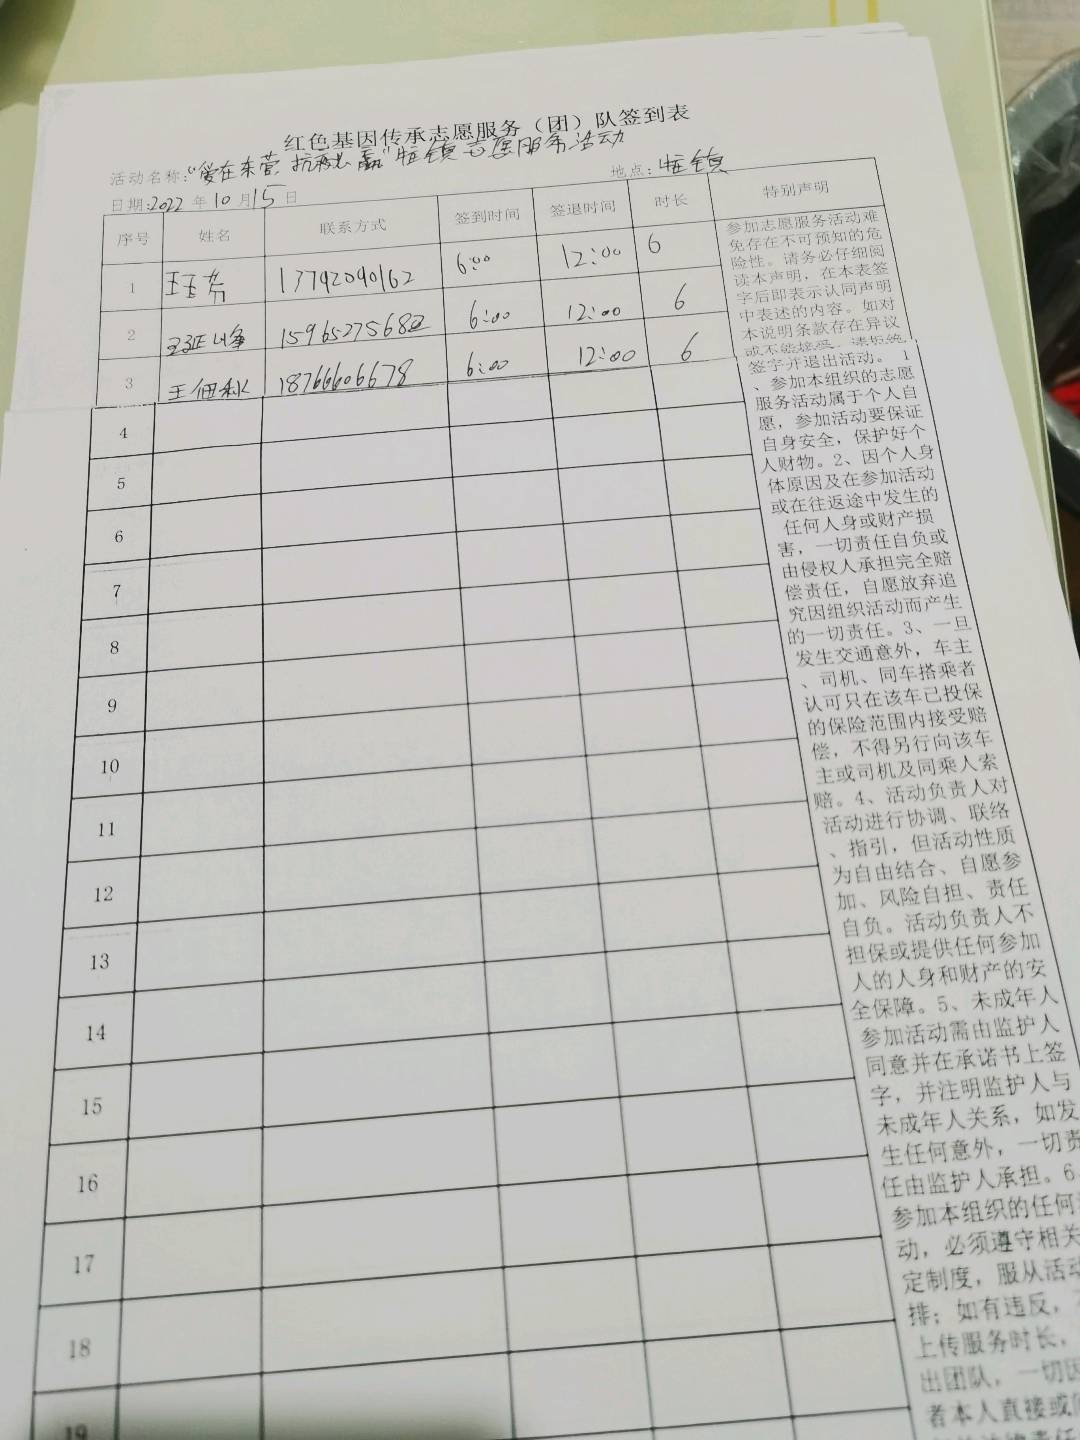 红色基因传承志愿服务（团）队签到表
活动名称:"爱在东营 抗疫必赢"牛镇志愿服务活动
地点:牛镇
日期:2022年10月15日
序号 姓名 联系方式 签到时间 签退时间 时长 特别声明
1 13792090162 6:00 12:00 6
2 王延峰 15965275682 6:00 12:00 6
3 王佃秋 18766606678 6:00 12:00 6
4
5
6
7
8
9
10
11
12
13
14
15
16
17
18
19
参加志愿服务活动难
免存在不可预知的危
险性。请务必仔细阅
读本声明，在本表签
字后即表示认同声明
中表述的内容。如对
本说明条款存在异议
或不能接受，请拒绝
签字并退出活动。1
、参加本组织的志愿
服务活动属于个人自
愿，参加活动要保证
自身安全，保护好个
人财物。2、因个人身
体原因及在参加活动
或在往返途中发生的
任何人身或财产损
害，一切责任自负或
由侵权人承担完全赔
偿责任，自愿放弃追
究因组织活动而产生
的一切责任。3、一旦
发生交通意外，车主
、司机、同车搭乘者
认可只在该车已投保
的保险范围内接受赔
偿，不得另行向该车
主或司机及同乘人索
赔。4、活动负责人对
活动进行协调、联络
、指引，但活动性质
为自由结合、自愿参
加、风险自担、责任
自负。活动负责人不
担保或提供任何参加
人的人身和财产的安
全保障。5、未成年人
参加活动需由监护人
同意并在承诺书上签
字，并注明监护人与
未成年人关系，如发
生任何意外，一切责
任由监护人承担。6
参加本组织的任何
动，必须遵守相关
定制度，服从活动
排；如有违反，
上传服务时长，
出团队，一切因
者本人直接或